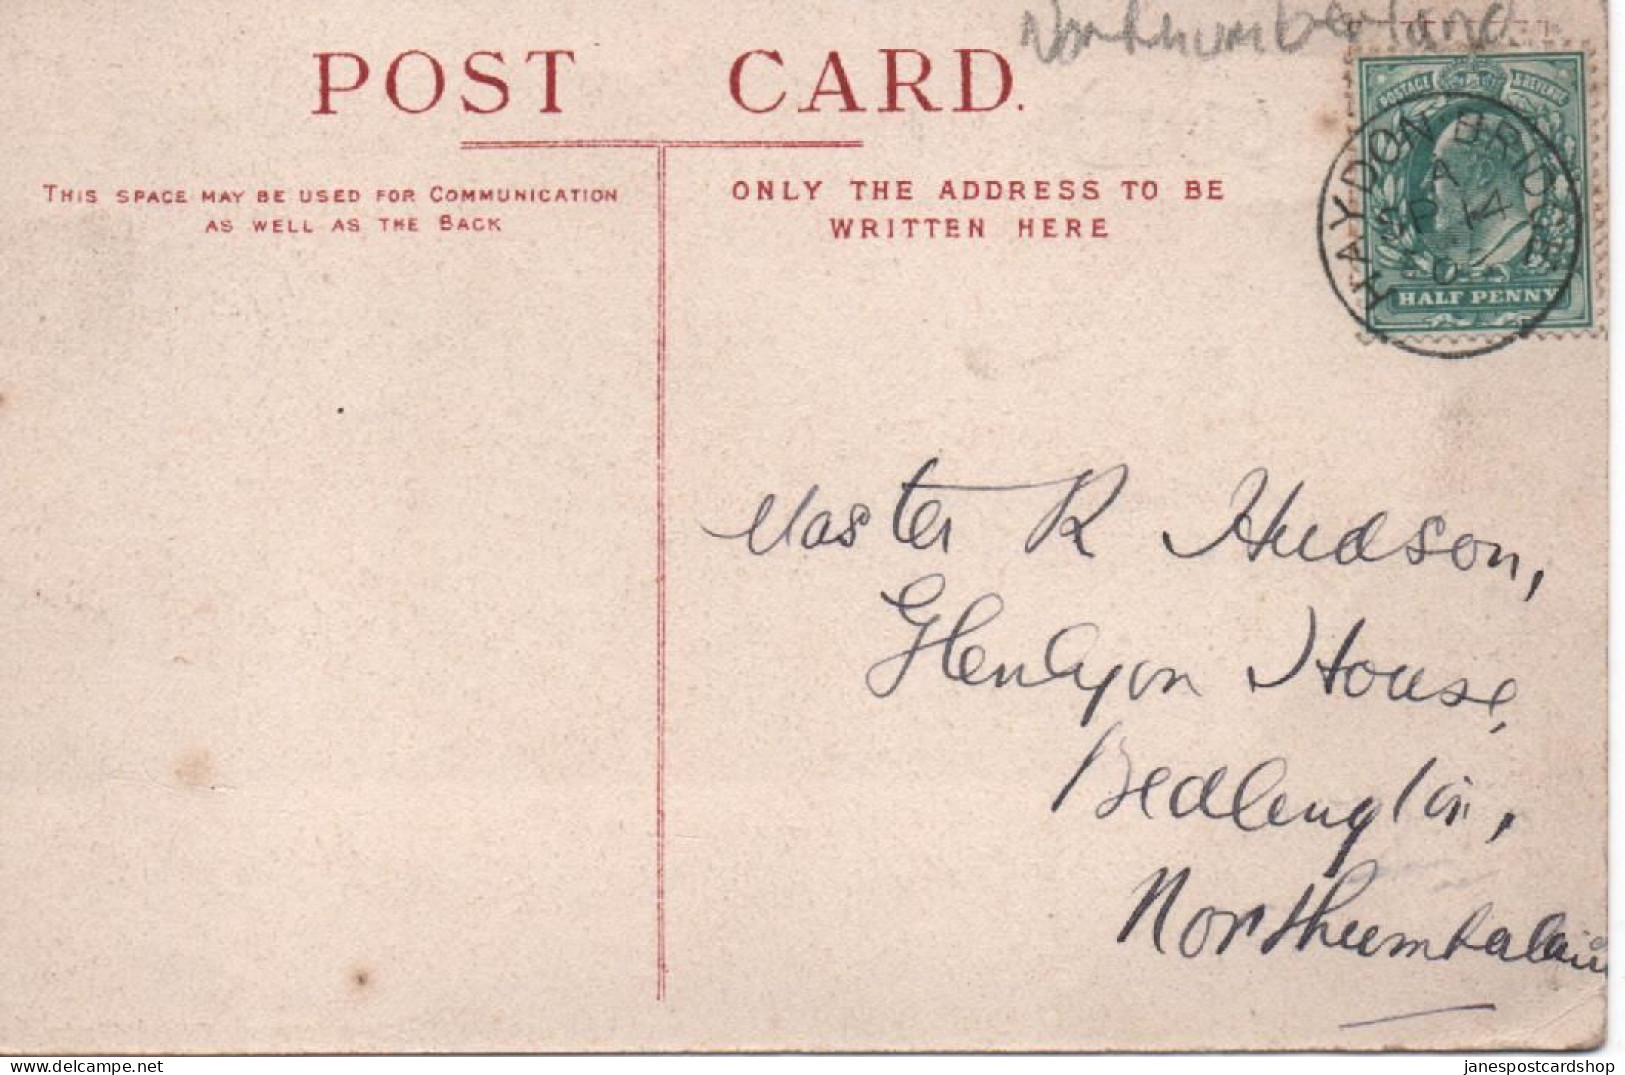 Northumberland
POST CARD.
THIS SPACE MAY BE USED FOR COMMUNICATION
AS WELL AS THE BACK
ONLY THE ADDRESS TO BE
WRITTEN HERE
POSTAGE & REVENUE
HAYDON BRIDGE
A
SP 14
HALF PENNY
Master R Hudson,
Glenlyon House,
Bedlington,
Northumberland
janespostcardshop